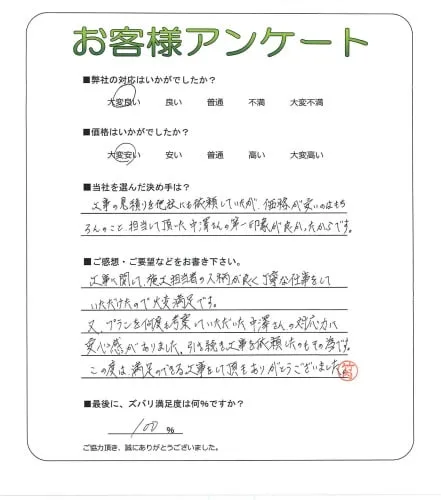 お客様アンケート
■弊社の対応はいかがでしたか?
大変良い 良い 普通 不満 大変不満
■価格はいかがでしたか?
大変安い 安い 普通 高い 大変高い
■当社を選んだ決め手は?
工事の見積りを他社にも依頼していたが、価格が安いのはもち
ろんのこと、担当して頂いた中澤さんの第一印象が良かったからです。
■ご感想・ご要望などをお書き下さい。
工事に関して、施工担当者の人柄が良く丁寧な仕事をして
いただけたので大変満足です。
又、プランを何度も考案していただいた中澤さんの対応力に
安心感がありました。引き続き工事を依頼したのもその為です。
この度は、満足のできる工事をして頂きありがとうございました。
■最後に、ズバリ満足度は何%ですか?
100 %
ご協力頂き、誠にありがとうございました。